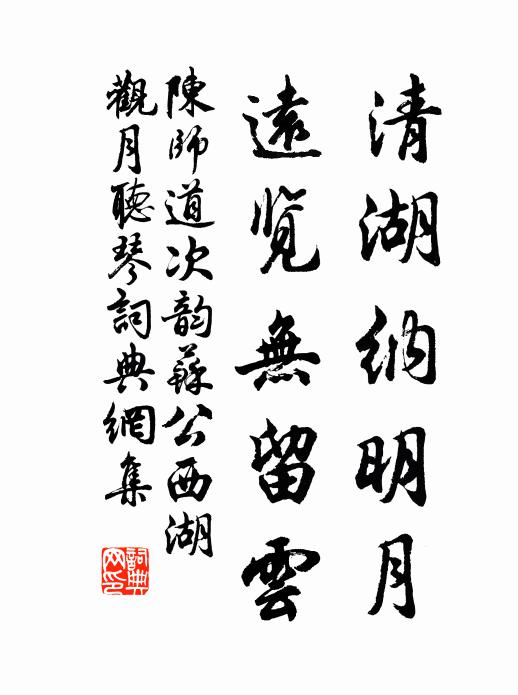 清湖納明月
遠覽無留雲
陳師道次韵蘇公西湖
觀月聽琴詞典網集
詞典
网印